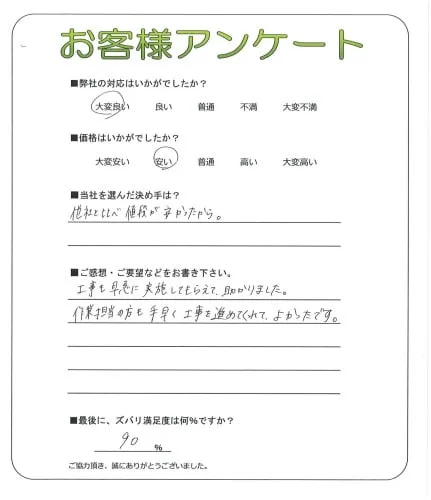 お客様アンケート
■弊社の対応はいかがでしたか？
大変良い 良い 普通 不満 大変不満
■価格はいかがでしたか？
大変安い 安い 普通 高い 大変高い
■当社を選んだ決め手は？
他社と比べ値段が安かったから。
■ご感想・ご要望などをお書き下さい。
工事も早急に実施してもらえて、助かりました。
作業担当の方も手早く工事を進めてくれて、よかったです。
■最後に、ズバリ満足度は何%ですか？
90 %
ご協力頂き、誠にありがとうございました。